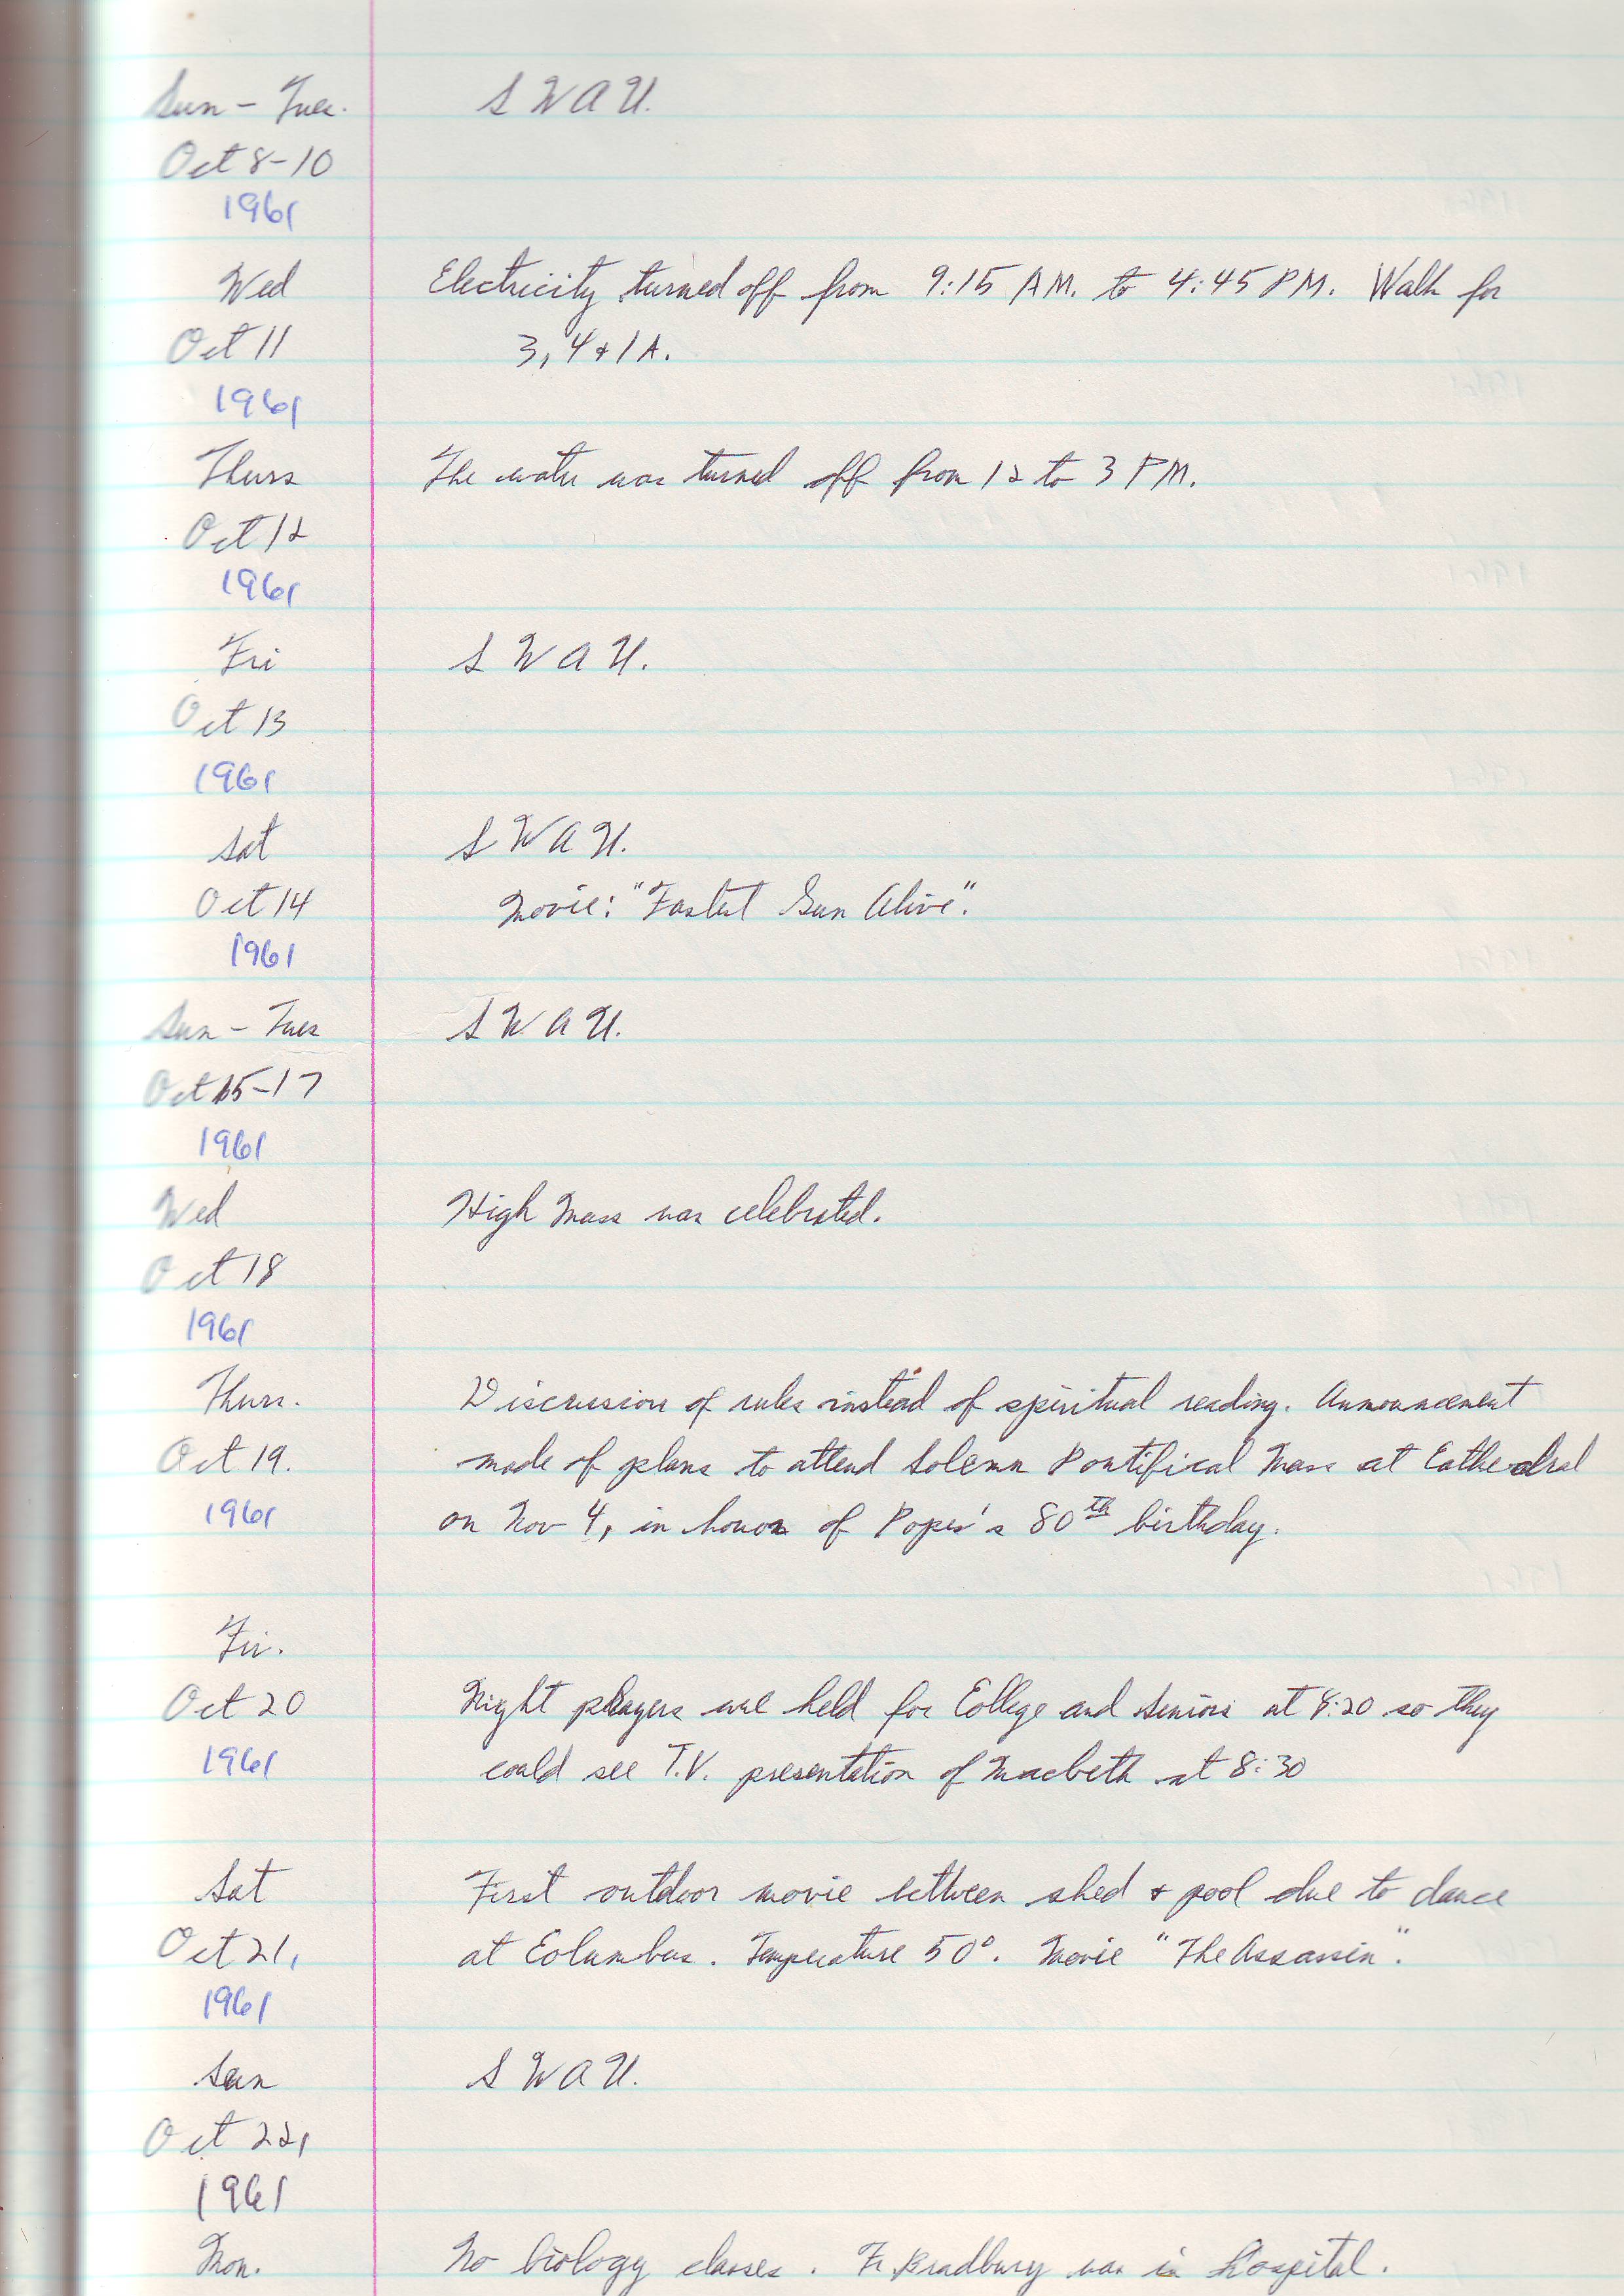 Sun - Tues. S W A U.
Oct 8-10
1961
Wed Electricity turned off from 9:15 A.M. to 4:45 P.M. Walk for
Oct 11 3, 4 + 1 A.
1961
Thurs The water was turned off from 12 to 3 P.M.
Oct 12
1961
Fri S W A U.
Oct 13
1961
Sat S W A U.
Oct 14 Movie: "Fastest Gun Alive".
1961
Sun - Tues S W A U.
Oct 15-17
1961
Wed High Mass was celebrated.
Oct 18
1961
Thurs. Discussion of rules instead of spiritual reading. Announcement
Oct 19. made of plans to attend Solemn Pontifical Mass at Cathedral
1961 on Nov 4, in honor of Pope's 80th birthday.
Fri.
Oct 20 Night prayers were held for College and Seniors at 8:20 so they
1961 could see T.V. presentation of Macbeth at 8:30
Sat First outdoor movie between shed + pool due to dance
Oct 21, at Columbus. Temperature 50°. Movie "The Assassin".
1961
Sun S W A U.
Oct 22,
1961
Mon. No biology classes. Fr. Bradbury was in hospital.